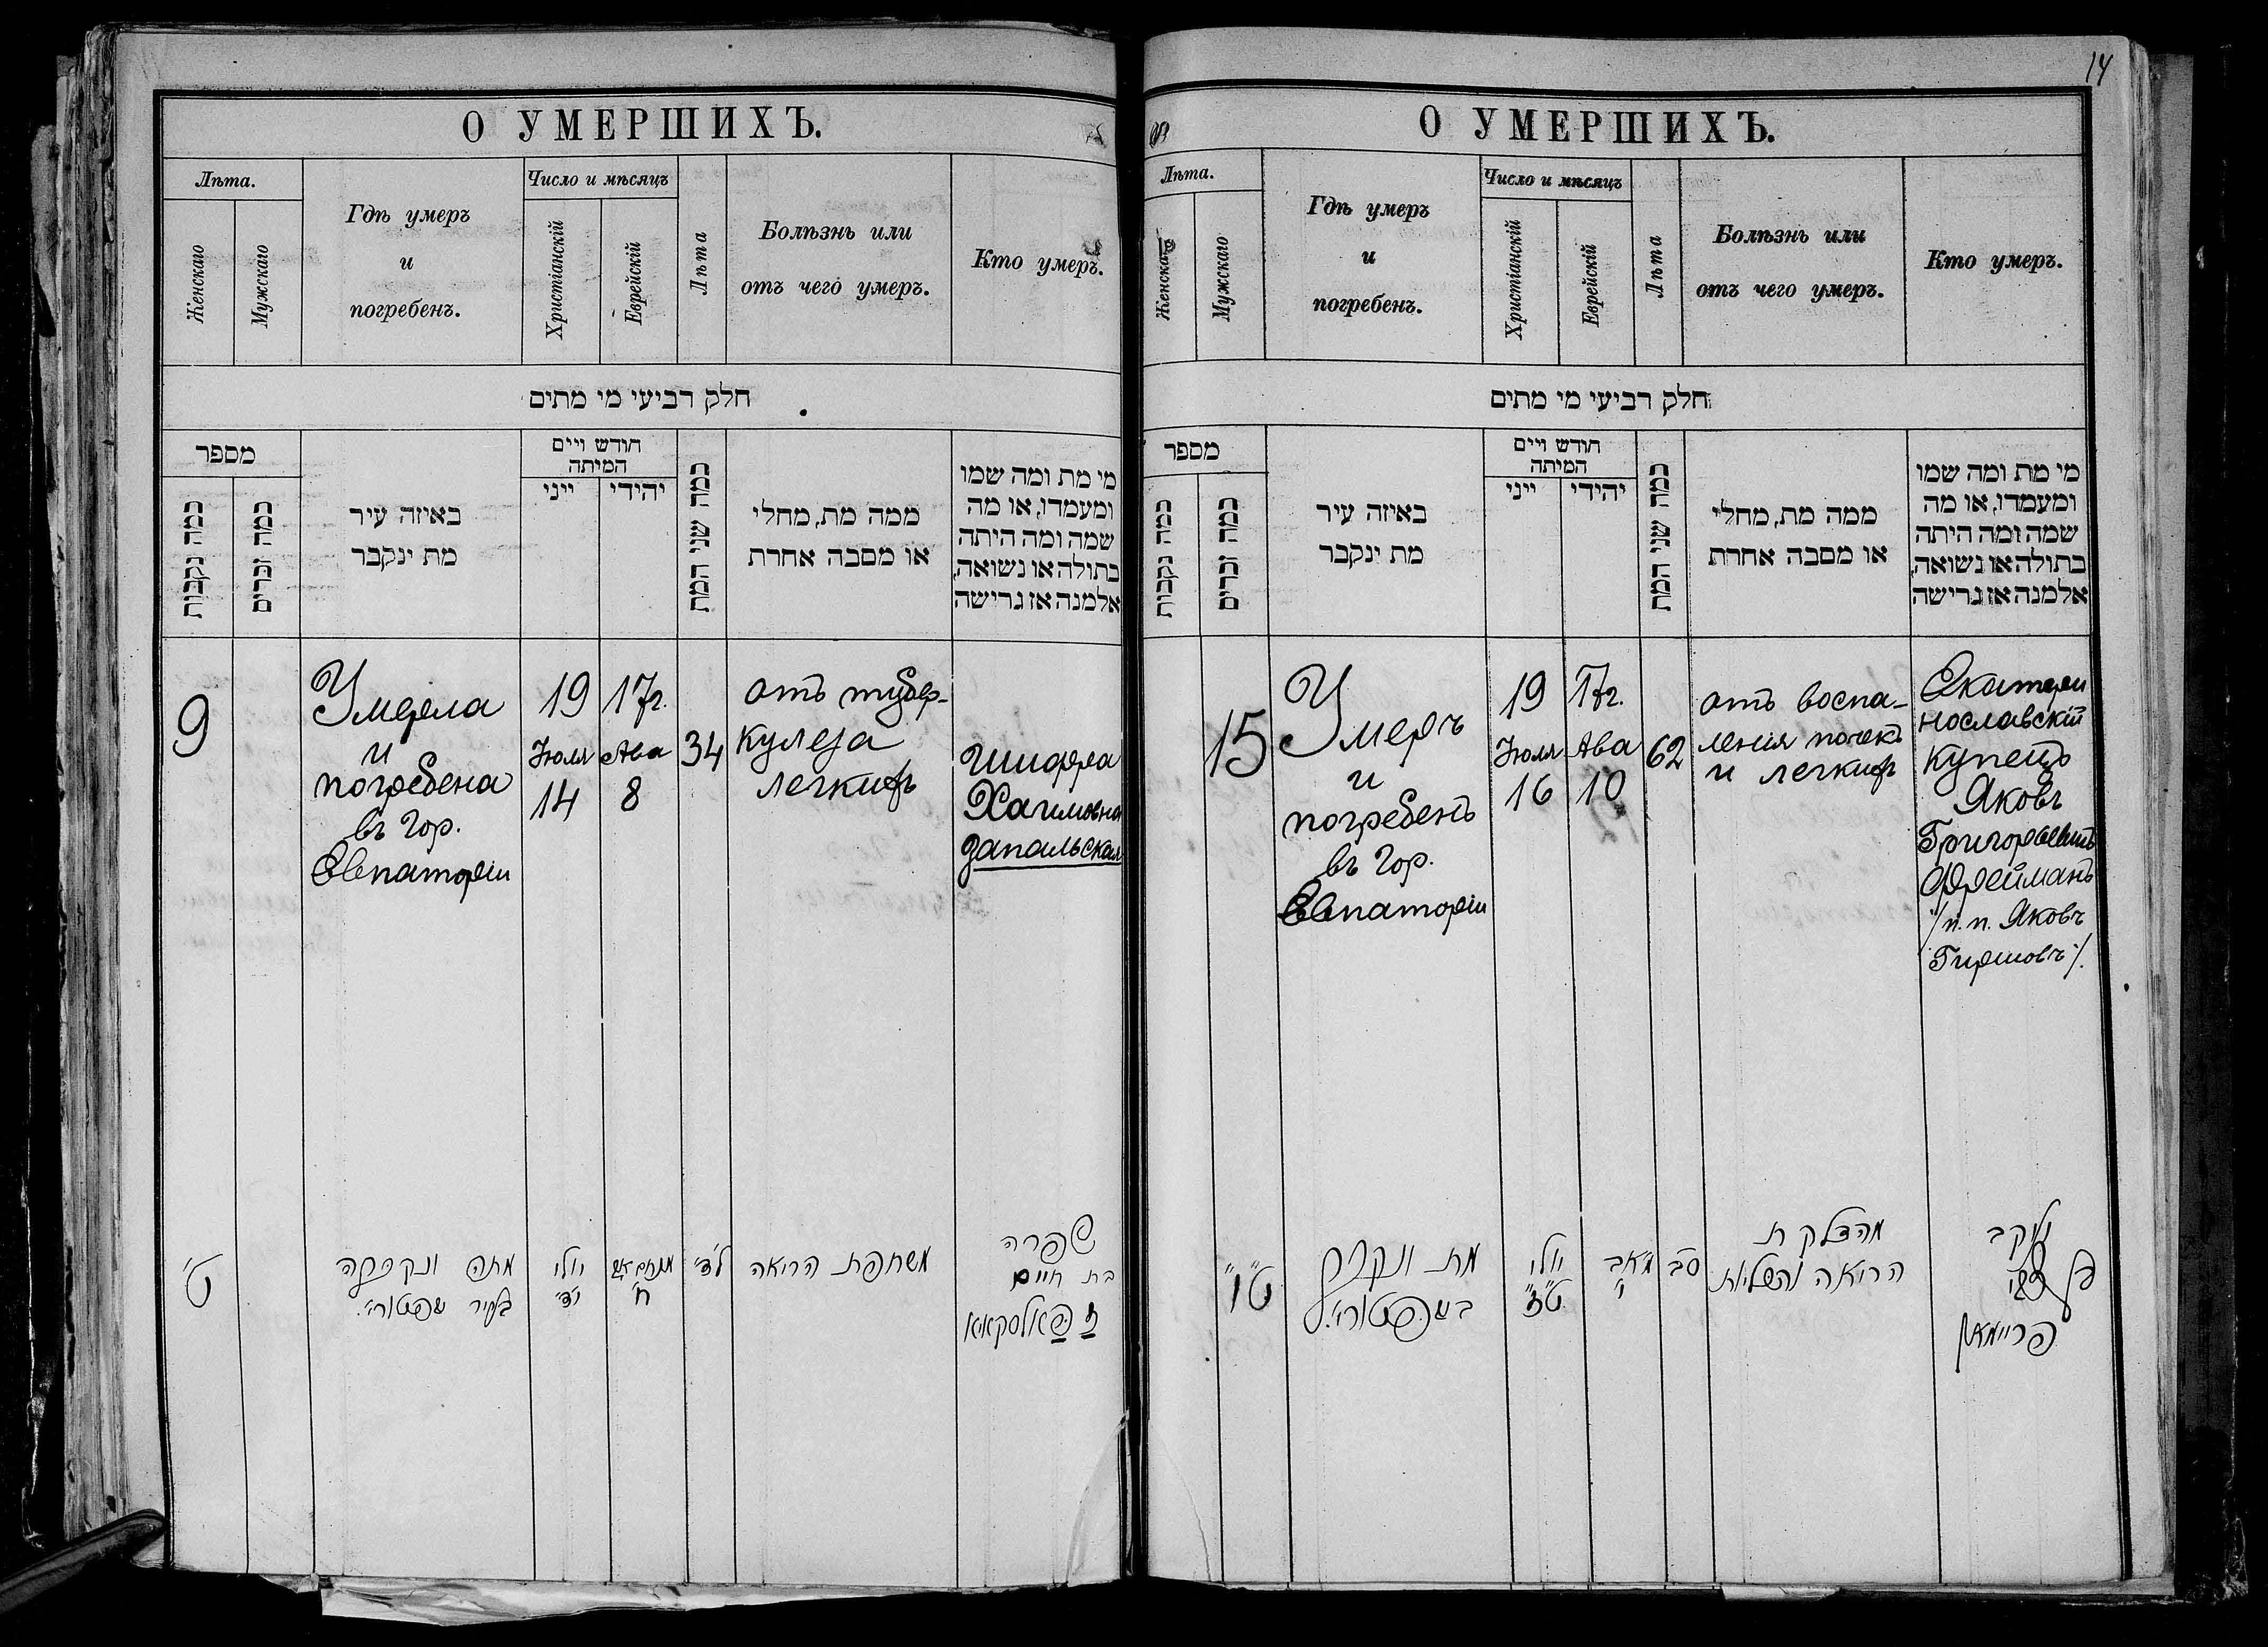 14
О УМЕРШИХЪ.
Лѣта.
Женскаго
Мужскаго
Гдѣ умеръ
и
погребенъ.
Число и мѣсяцъ
Христіанскій
Еврейскій
Лѣта
Болѣзнь или
отъ чего умеръ.
Кто умеръ.
חלק רביעי מי מתים
מספר
כמה נקבות
כמה זכרים
באיזה עיר
מת ינקבר
חודש ויים
המיתה
ייני
יהידי
כמה שני המת
ממה מת, מחלי
או מסבה אחרת
מי מת ומה שמו
ומעמדו, או מה
שמה ומה היתה
בתולה או נשואה,
אלמנה או גרישה
9
Умерла
и
погребена
въ гор.
Евпаторіи
19 17г.
Іюля Ава
14 8
34
отъ тубер-
кулеза
легкихъ
Шифра
Хаимовна
Запальская
ט'
מתה ונקברה
בעיר
יולי
י"ד
מנחם אב
ח'
ל"ד
משחפת הריאה
שפרה
בת חיים
זאפאלסקאיא
О УМЕРШИХЪ.
Лѣта.
Женскаго
Мужскаго
Гдѣ умеръ
и
погребенъ.
Число и мѣсяцъ
Христіанскій
Еврейскій
Лѣта
Болѣзнь или
отъ чего умеръ.
Кто умеръ.
חלק רביעי מי מתים
מספר
כמה נקבות
כמה זכרים
באיזה עיר
מת ינקבר
חודש ויים
המיתה
ייני
יהידי
כמה שני המת
ממה מת, מחלי
או מסבה אחרת
מי מת ומה שמו
ומעמדו, או מה
שמה ומה היתה
בתולה או נשואה,
אלמנה או גרישה
15
Умеръ
и
погребенъ
въ гор.
Евпаторіи
19 17г.
Іюля Ава
16 10
62
отъ воспа-
ленія почекъ
и легкихъ
Екатери
нославскій
купецъ
Яковъ
Григорьевичъ
Фрейманъ
/п. п. Яковъ
Гиршовъ/.
ט"ו
מת ונקבר
יולי
ט"ז
י'
סב
מהדלקת
הריאה והכליות
יעקב
פריימאן